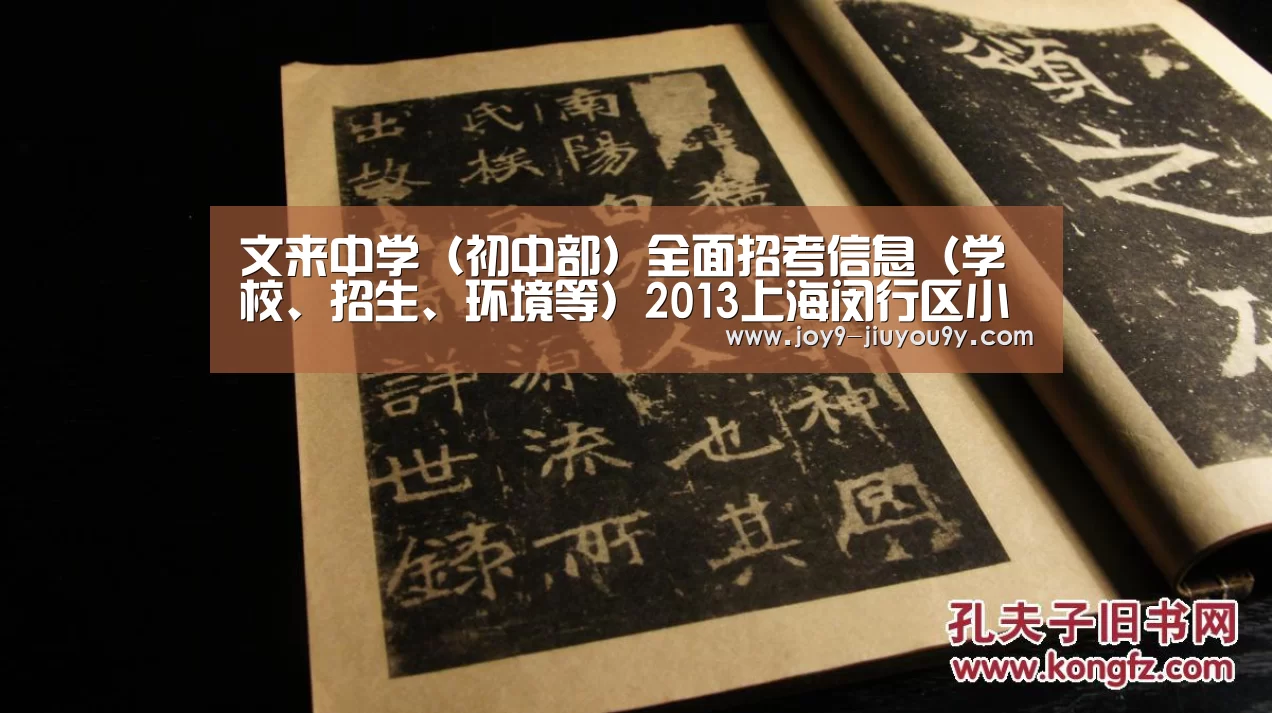 文来中学（初中部）全面招考信息（学
校、招生、环境等）2013上海闵行区小
www.joy9-jiuyou9y.com
頌之
猛
神
南陽白
人也其
氏族
源流所
出故
詳世錄
孔夫子旧书网
www.kongfz.com